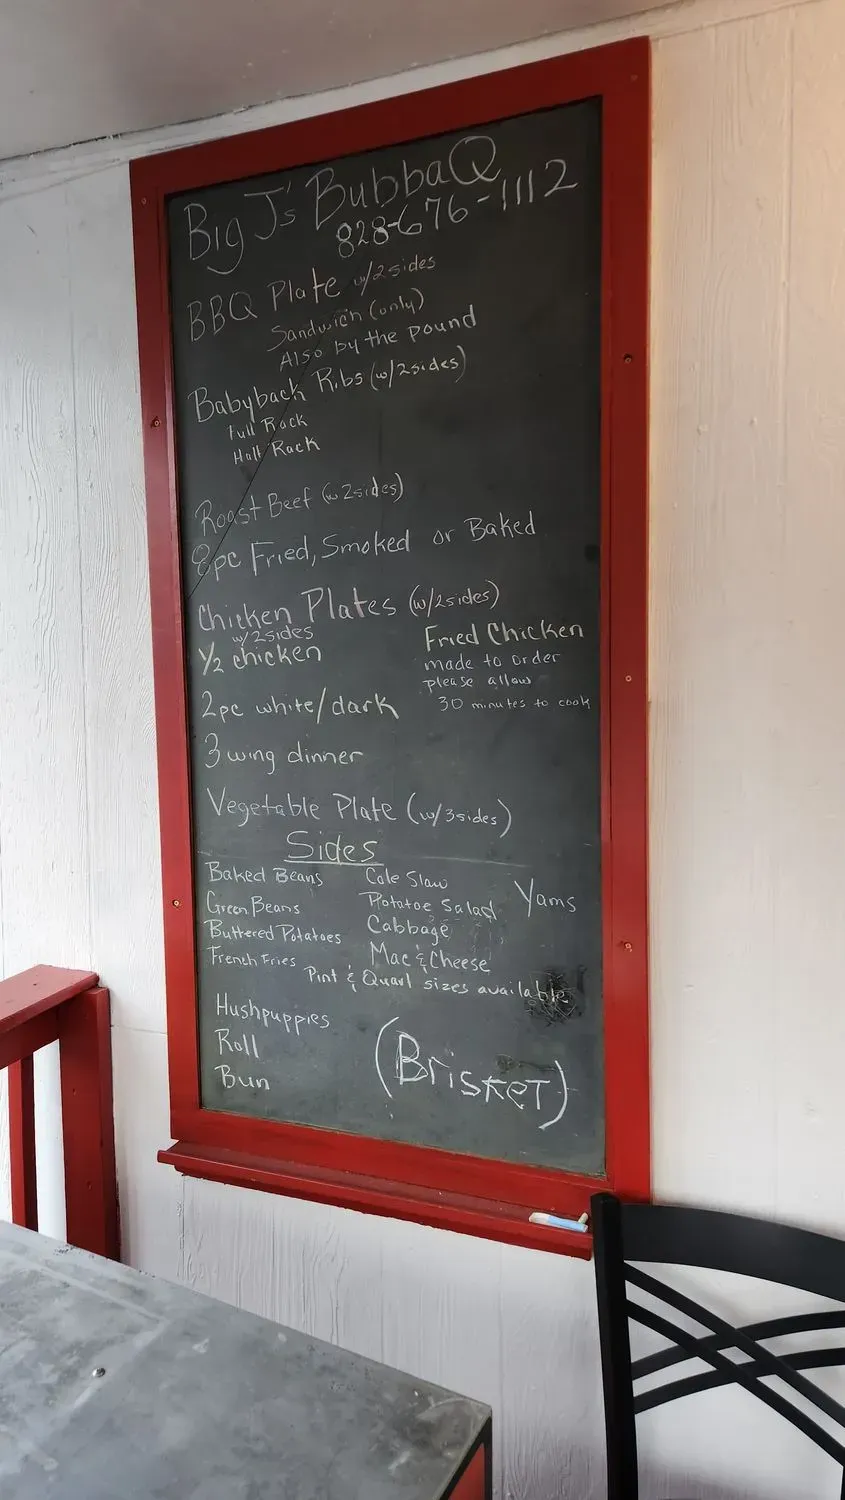 Big J's BubbaQ
828-676-1112
BBQ Plate w/2sides
Sandwich (only)
Also by the pound
Babyback Ribs (w/2sides)
Full Rack
Half Rack
Roast Beef (w 2sides)
8pc Fried, Smoked or Baked
Chicken Plates (w/2sides)
w/2sides
1/2 chicken
Fried Chicken
made to order
please allow
30 minutes to cook
2pc white/dark
3 wing dinner
Vegetable Plate (w/3sides)
Sides
Baked Beans Cole Slaw
Green Beans Potatoe Salad Yams
Buttered Potatoes Cabbage
French Fries Mac & Cheese
Pint & Quart sizes available
Hushpuppies
Roll
Bun
(BrisKeT)